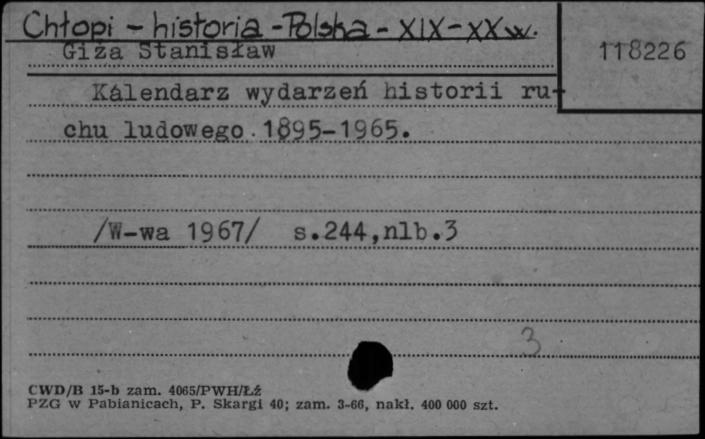 Chłopi - historia - Polska - XIX-XX w.
118226
Giża Stanisław
Kalendarz wydarzeń historii ru-
chu ludowego 1895-1965.
/W-wa 1967/ s.244,nlb.3
3
CWD/B 15-b zam. 4065/PWH/Łź
PZG w Pabianicach, P. Skargi 40; zam. 3-66, nakł. 400 000 szt.